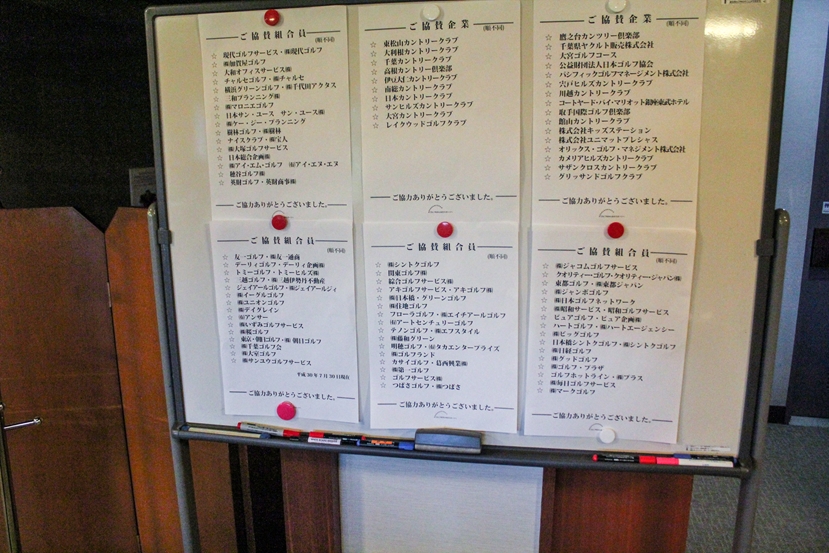 ご協賛組合員
(順不同)
☆ 現代ゴルフサービス・㈱現代ゴルフ
☆ ㈱加賀屋ゴルフ
☆ 大和オフィスサービス㈱
☆ チャルセゴルフ・㈱チャルセ
☆ 横浜グリーンゴルフ・㈱千代田アクタス
☆ 三和プランニング㈱
☆ ㈱マロニエゴルフ
☆ 日本サン・ユース サン・ユース㈱
☆ ㈱ケー・ジー・プランニング
☆ 樹林ゴルフ・㈱樹林
☆ ナイスクラブ・㈱宝人
☆ ㈱大塚ゴルフサービス
☆ 日本総合企画㈱
☆ ㈱アイ・エム・ゴルフ ㈲アイ・エヌ・エヌ
☆ 穂谷ゴルフ㈱
☆ 英財ゴルフ・英財商事㈱
ご協力ありがとうございました。
ご協賛企業
(順不同)
☆ 東松山カントリークラブ
☆ 大利根カントリークラブ
☆ 千葉カントリークラブ
☆ 高根カントリー倶楽部
☆ 伊豆大仁カントリークラブ
☆ 南総カントリークラブ
☆ 日本カントリークラブ
☆ サンヒルズカントリークラブ
☆ 大宮カントリークラブ
☆ レイクウッドゴルフクラブ
ご協力ありがとうございました。
ご協賛企業
(順不同)
☆ 鷹之台カンツリー倶楽部
☆ 千葉県ヤクルト販売株式会社
☆ 大宮ゴルフコース
☆ 公益財団法人日本ゴルフ協会
☆ パシフィックゴルフマネージメント株式会社
☆ 宍戸ヒルズカントリークラブ
☆ 川越カントリークラブ
☆ コートヤード・バイ・マリオット銀座東武ホテル
☆ 取手国際ゴルフ倶楽部
☆ 館山カントリークラブ
☆ 株式会社キッズステーション
☆ 株式会社ユニマットプレシャス
☆ オリックス・ゴルフ・マネジメント株式会社
☆ カメリアヒルズカントリークラブ
☆ サザンクロスカントリークラブ
☆ グリッサンドゴルフクラブ
ご協力ありがとうございました。
ご協賛組合員
(順不同)
☆ 友一ゴルフ・㈱友一通商
☆ デーリィゴルフ・デーリィ企画㈱
☆ トミーゴルフ・トミーヒルズ㈱
☆ 三越ゴルフ・㈱三越伊勢丹不動産
☆ ジェイアールゴルフ・㈱ジェイアールジィ
☆ ㈱イーグルゴルフ
☆ ㈱ユニオンゴルフ
☆ ㈱デイグレイン
☆ ㈲アンサー
☆ ㈱いずみゴルフサービス
☆ ㈱桜ゴルフ
☆ 東京・朝日ゴルフ・㈱朝日ゴルフ
☆ ㈱千葉ゴルフ会
☆ ㈱大室ゴルフ
☆ ㈱サンユウゴルフサービス
平成30年7月10日現在
ご協力ありがとうございました。
ご協賛組合員
(順不同)
☆ ㈱シントクゴルフ
☆ 関東ゴルフ㈱
☆ 綜合ゴルフサービス㈱
☆ アキゴルフサービス・アキゴルフ㈱
☆ ㈱日本橋・グリーンゴルフ
☆ ㈱住地ゴルフ
☆ フローラゴルフ・㈱エイチアールゴルフ
☆ ㈲アートセンチュリーゴルフ
☆ テノンゴルフ・㈱エフスタイル
☆ ㈱藤和グリーン
☆ 明穂ゴルフ・㈲タカエンタープライズ
☆ ㈱ゴルフランド
☆ カサイゴルフ・葛西興業㈱
☆ ㈱第一ゴルフ
☆ ゴルフサービス㈱
☆ つばさゴルフ・㈱つばさ
ご協力ありがとうございました。
ご協賛組合員
(順不同)
☆ ㈱ジャコムゴルフサービス
☆ クオリティーゴルフ・クオリティー・ジャパン㈱
☆ 東都ゴルフ・㈱東都ジャパン
☆ ㈱ジャンボゴルフ
☆ ㈱日本ゴルフネットワーク
☆ ㈱昭和サービス・昭和ゴルフサービス
☆ ピュアゴルフ・ピュア企画㈱
☆ ハートゴルフ・㈱ハートエージェンシー
☆ ㈱ビッグゴルフ
☆ 日本橋シントクゴルフ・㈱シントクゴルフ
☆ ㈱日経ゴルフ
☆ ㈱グッドゴルフ
☆ ㈱ゴルフ・プラザ
☆ ゴルフホットライン・㈱プラス
☆ ㈱毎日ゴルフサービス
☆ ㈱マークゴルフ
ご協力ありがとうございました。